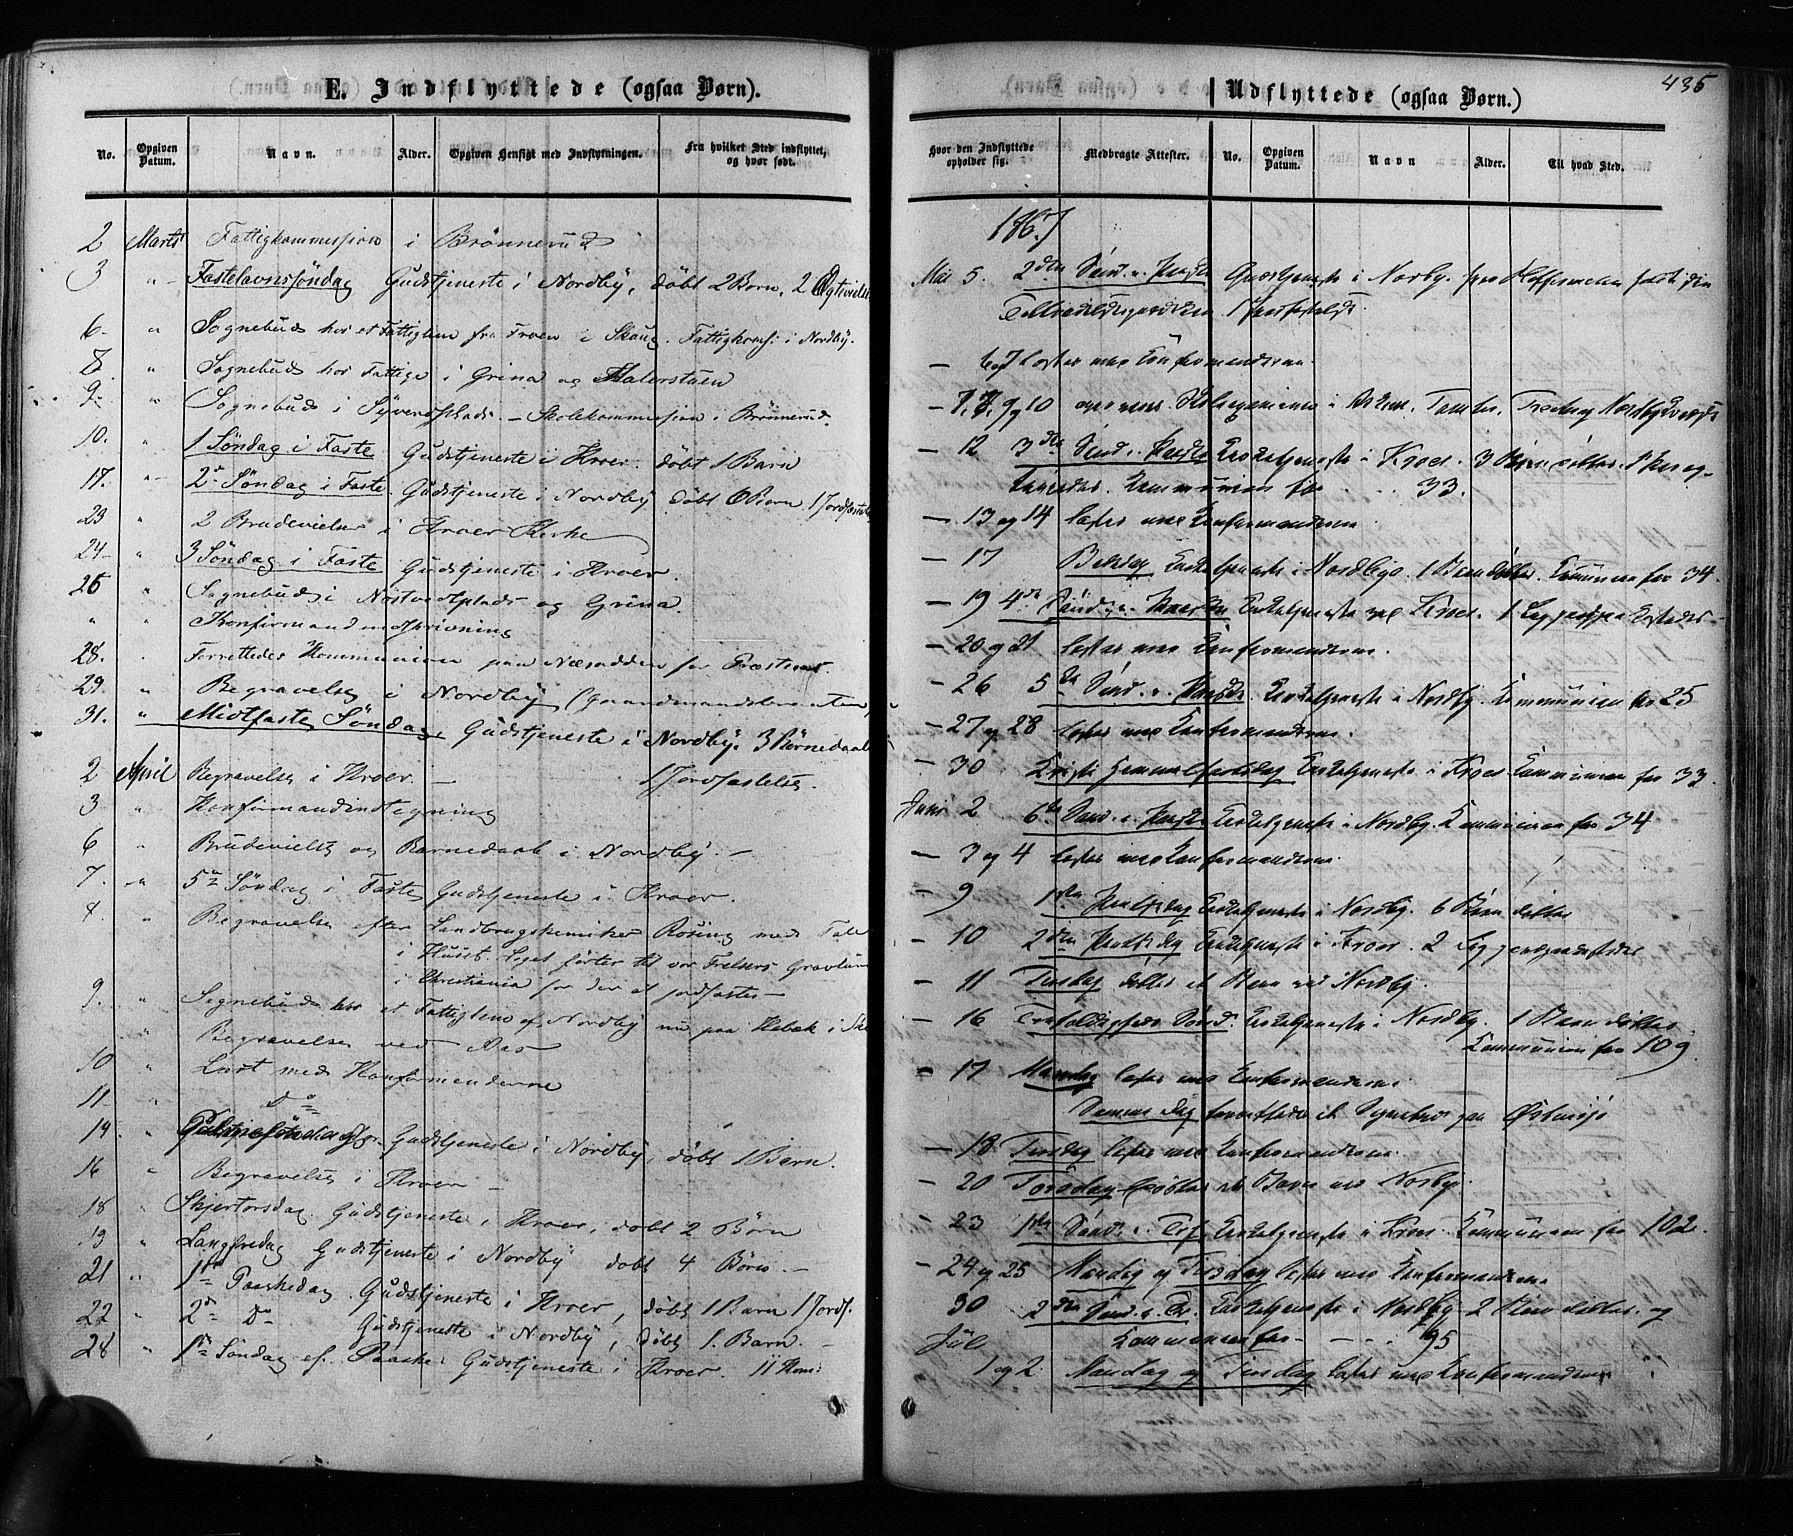 E. Indflyttede (ogsaa Børn).
No. Opgiven Datum. Navn. Alder. Opgiven Hensigt med Indflytningen. Fra hvilket Sted indflyttet, og hvor født.
2 Marts Fattigkommission i Brønnerud
3 " Fastelavnssøndag Gudstjeneste i Nordby, døbt 2 Børn, 2 Ægtevielse
6 " Sognebud hos et Fattiglem fra Froen i Skoug. Fattigkoms: i Nordby.
8. " Sognebud hos Fattige i Grina og
9. " Sognebud i Syverudplads – Skolekommission i Brønnerud.
10. " 1 Søndag i Faste Gudstjeneste i Kroer. døbt 1 Barn
17. " 2n Søndag i Faste Gudstjeneste i Nordby døbt 6 Børn, 1 Jordfæstelse
23 " 2 Brudevielser i Kroer Kirke
24 " 3 Søndag i Faste Gudstjeneste i Kroer.
25 " Sognebud i Nøstvedtplads og Grina.
" " Konfirmandindskrivning
28. " Forrettedes Kommunion paa Næsodden for Præsten
29. " Begravelse i Nordby
31. " Midtfaste Søndag. Gudstjeneste i Nordby. 3 Børnedaab
2 April Begravelse i Kroer. — 1 Jordfæstelse.
3 " Konfirmandindtegning
6 " Brudevielse og Barnedaab i Nordby. –
7. " 5te Søndag i Faste Gudstjeneste i Kroer.
8. " Begravelse efter Landbrugskemiker Rosing med Tale
i Huset. Liget førtes til vor Frelsers Gravlund
i Christiania for der at jordfæstes –
9. " Sognebud hos et Fattiglem af Nordby nu paa Holbek i
" Begravelse ved Aas
10 " Læst med Konfirmanderne
11 " Do
14. " Palmesøndag. Gudstjeneste i Nordby, døbt 1 Barn.
16 " Begravelse i Kroer –
18 " Skjertorsdag. Gudstjeneste i Kroer, døbt 2 Børn
19 " Langfredag Gudstjeneste i Nordby døbt 4 Børn. –
21 " 1ste Paaskedag. Gudstjeneste i Kroer, døbt 1 Barn 1 Jordf.
22 " 2d Do Gudstjeneste i Nordby, døbt 1. Barn. –
28 " 1ste Søndag ef. Paaske: Gudstjeneste i Kroer. 11 Kom:
Udflyttede (ogsaa Børn.) 435
Hvor den Indflyttede opholder sig. Medbragte Attester. No. Opgiven Datum. Navn Alder. Til hvad Sted.
1867
Mai 5. 2den Sønd. e. Paaske Gudstjeneste i Norby.
1 Jordfæstelse.
— 6 og 7 læstes med Konfirmanderne
— 7. 8. 9 og 10
— 12 3die Sønd. e. Paaske Gudstjeneste i Kroer. 3 Børn døbtes.
Kommunion for 33.
— 13 og 14 læstes med Konfirmanderne
— 17 Bededag Gudstjeneste i Nordby. 1 Barn døbtes. Kommunion for 34.
— 19 4de Sønd. e. Paaske Gudstjeneste ved Kroer. 1
— 20 og 21 læstes med Konfirmanderne.
— 26 5te Sønd. e. Paaske. Gudstjeneste i Nordby. Kommunion for 25
— 27 og 28 læstes med Konfirmanderne.
— 30 Kristi Himmelfartsdag Gudstjeneste i Kroer Kommunion for 33.
Juni 2 6te Sønd. e. Paaske Gudstjeneste i Nordby. Kommunion for 34
— 3 og 4 læstes med Konfirmanderne
— 9 1ste Pintsedag Gudstjeneste i Nordby. 6 Børn døbtes
— 10 2den Pintsedag Gudstjeneste i Kroer. 2
— 11 Tirsdag døbtes et Barn ved Nordby.
— 16 Trefoldigheds Sønd. Gudstjeneste i Nordby. 1 Barn døbtes
Kommunion for 109.
— 17 Mandag læstes med Konfirmanderne
Samme Dag forrettedes et Sognebud paa Østensjø
— 18 Tirsdag læstes med Konfirmanderne.
— 20 Torsdag døbtes et Barn ved Norby.
— 23 1ste Sønd. e. Tref. Gudstjeneste i Kroer. Kommunion for 102.
— 24 og 25 Mandag og Tirsdag læstes med Konfirmanderne
— 30 2den Sønd. e. Tr. Gudstjeneste i Nordby 2 Børn døbtes. og
Kommunion for – – – 95
Juli
1 og 2. Mandag og Tirsdag læstes med Konfirmanderne